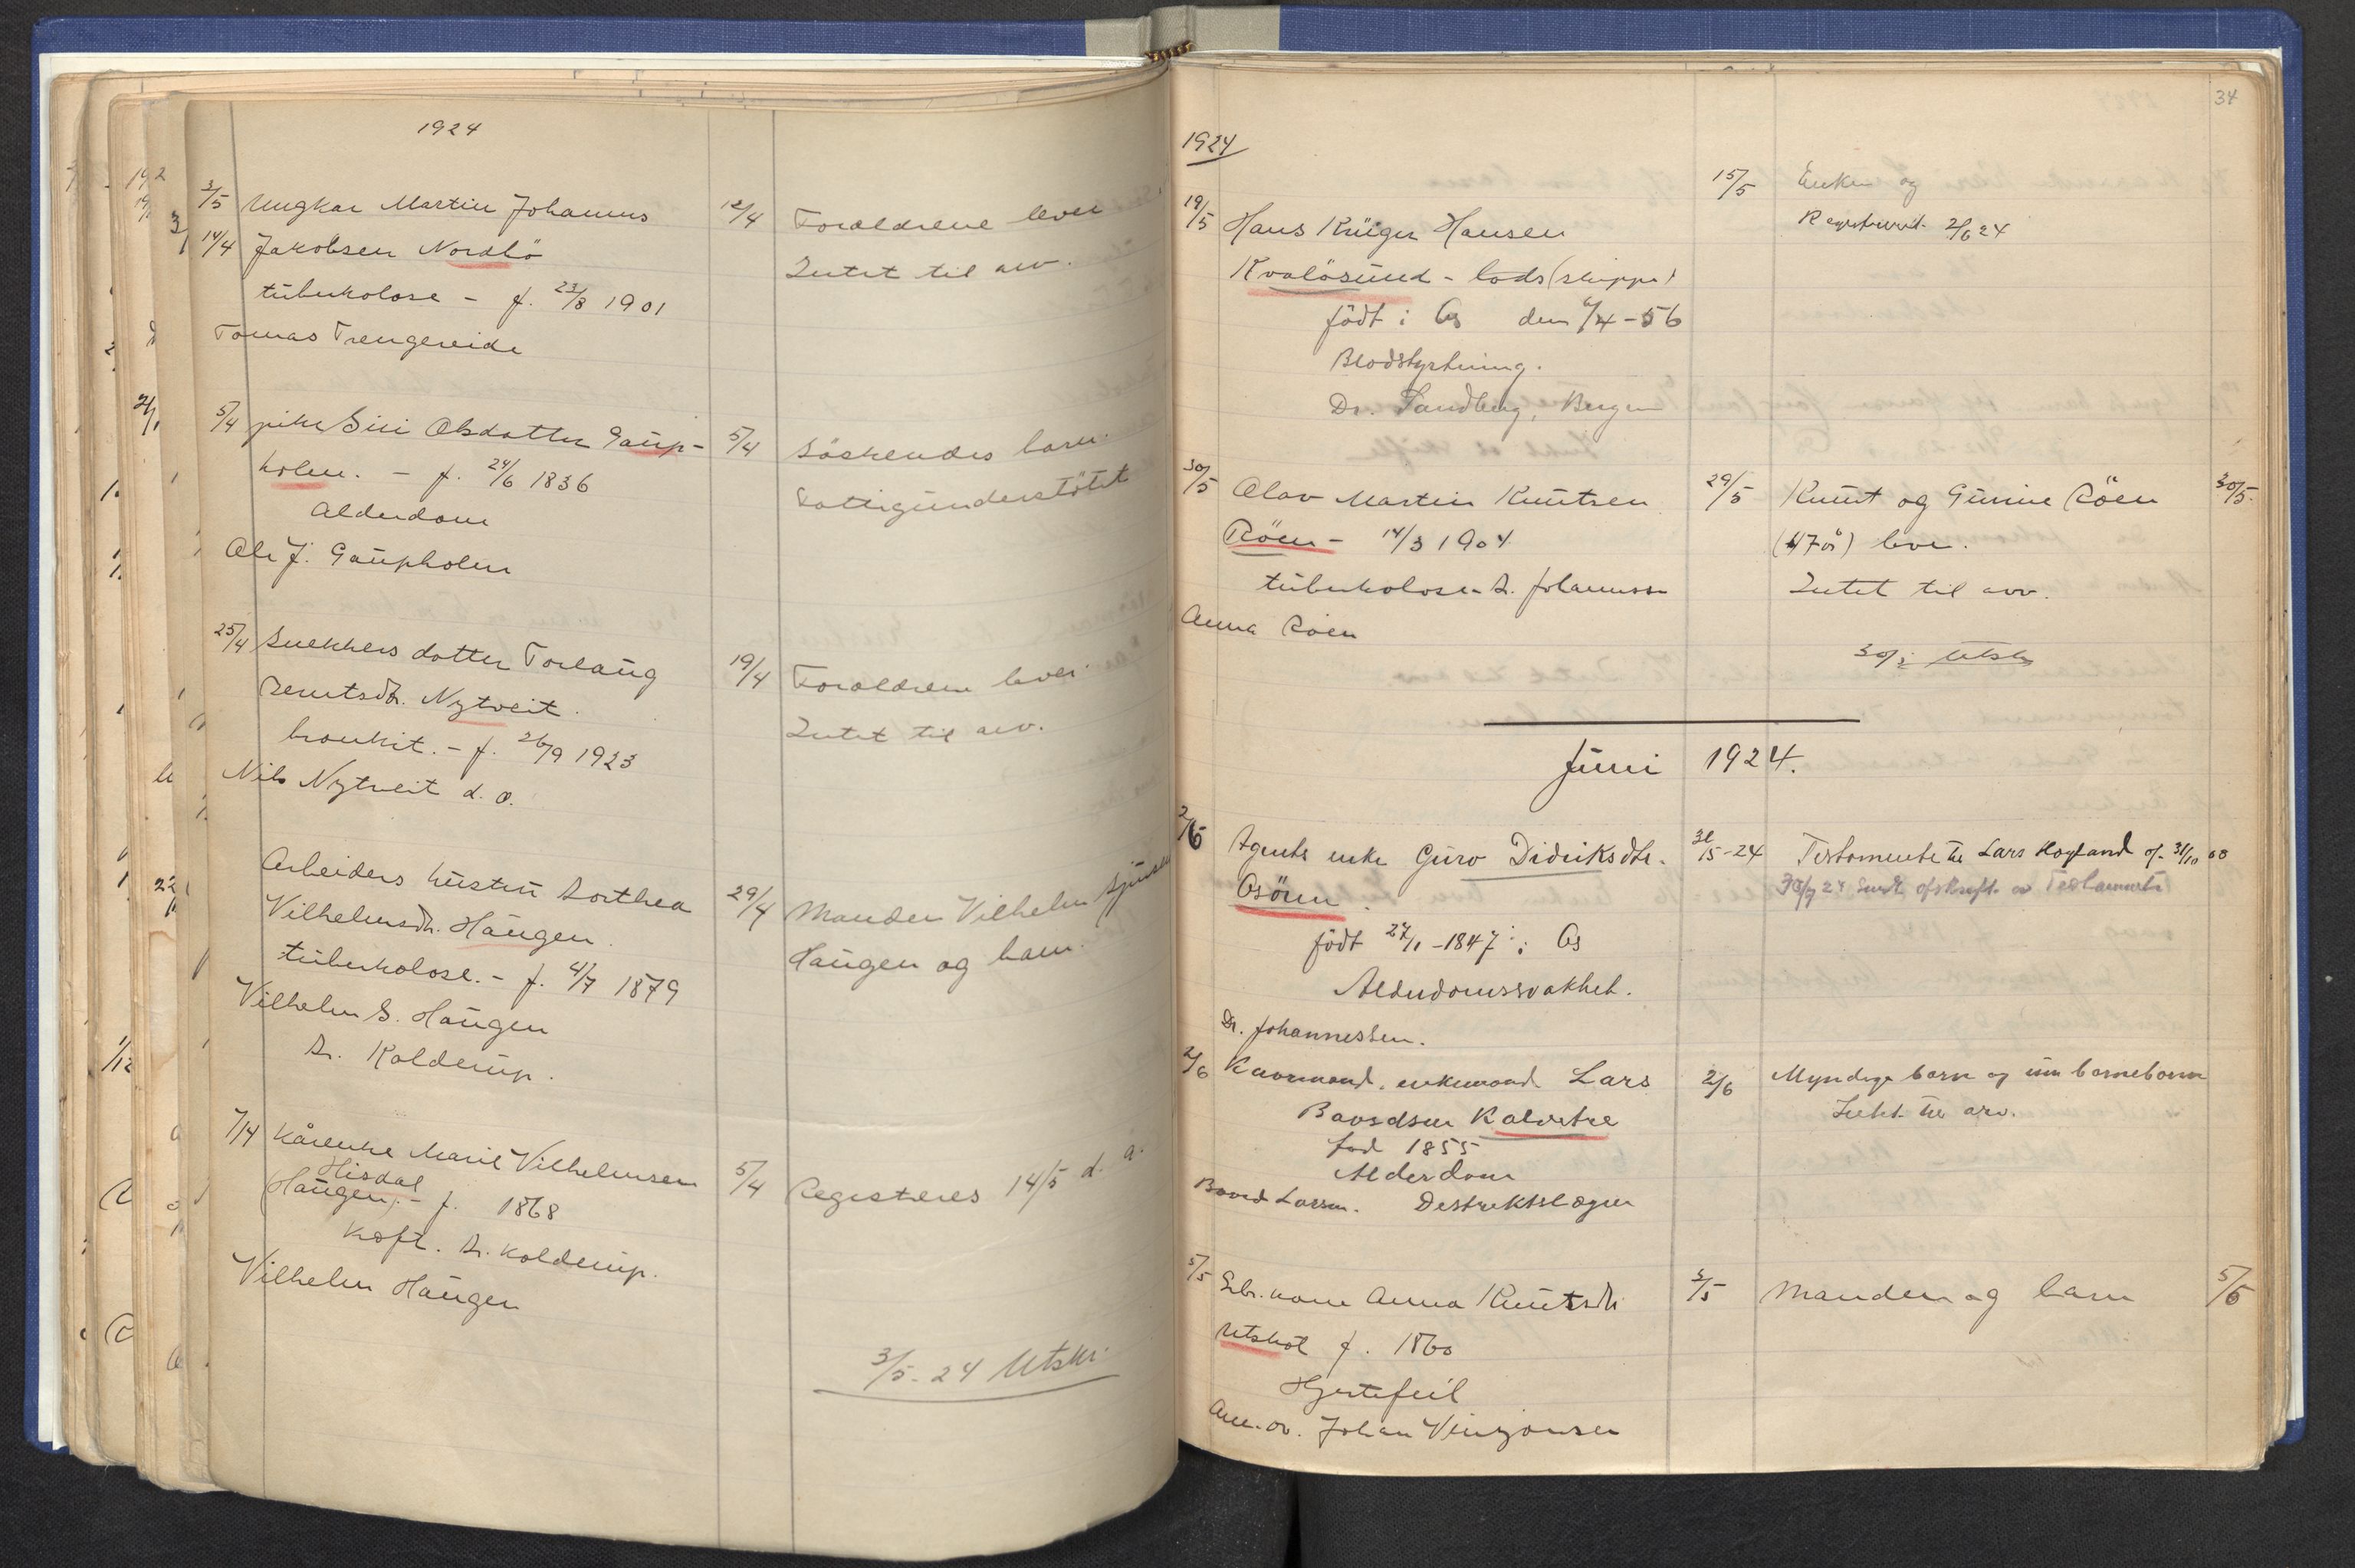 1924
3/5 Ungkar Martin Johannes 12/4 Foreldrene lever
14/4 Jakobsen Nordbö Intet til arv.
tüberkolose - f. 23/8 1901
Tomas Trengereide
5/4 pike Siri Olsdatter Gaup- 5/4 Söskendes barn.
holm. - f. 24/6 1836 Fattigünderstötet
Alderdom
Ole J. Gaupholm
25/4 Snekkers datter Torlaug 19/4 Foreldrene lever
Berntsdtr. Nytveit. Intet til arv.
bronkit. - f. 26/9 1923
Nils Nytveit d. o.
Arbeiders hüstrü Dorthea 29/4 Manden Vilhelm
Vilhelmsdtr. Haugen. Haugen og barn.
tüberkolose. - f. 4/7 1879
Vilhelm S. Haugen
Dr. Kolderup.
7/4 Kårenke Marie Vilhelmsen 5/4 Registreres 14/5 d. a.
Hisdal
(Haugen). - f. 1868
Kræft. Dr. Kolderup.
Vilhelm Haugen
3/5-24 Utskr.
34
1924
15/5 Enken og
19/5 Hans Krüger Hansen Registrert 2/6 24
Kvalösund - lods (skipper)
födt i Os den 6/4-56
Blodstyrtning.
Dr. Sandberg, Bergen
30/5 Olav Martin Knutsen 29/5 Knut og Gurine Röen 30/5.
Röen - 14/3 1904 (47 ) lever.
tüberkolose. Dr. Johannessen Intet til arv.
Anna Röen
30/5 Utskr
Juni 1924.
2/6 Agents enke Guro Didriksdtr. 31/5-24 Testamente til Lars Hogland af 31/10 08
Osören. 7 24 Sendt afskrift av Testamente
födt 27/1-1847 i Os
Alderdomssvakhet.
Dr. Johannessen.
2/6 Kaarmand, enkemand Lars 2/6 Myndige barn og barnebarn
Baardsen Kalvetre Intet til arv.
fød 1855
Alderdom
Baard Larsen. Destriktslægen
5/5 Gbr. kone Anna Knutsdtr 5/5 Manden og barn 5/6
Utskot f. 1860
Hjertefeil
Johan Vinjansen